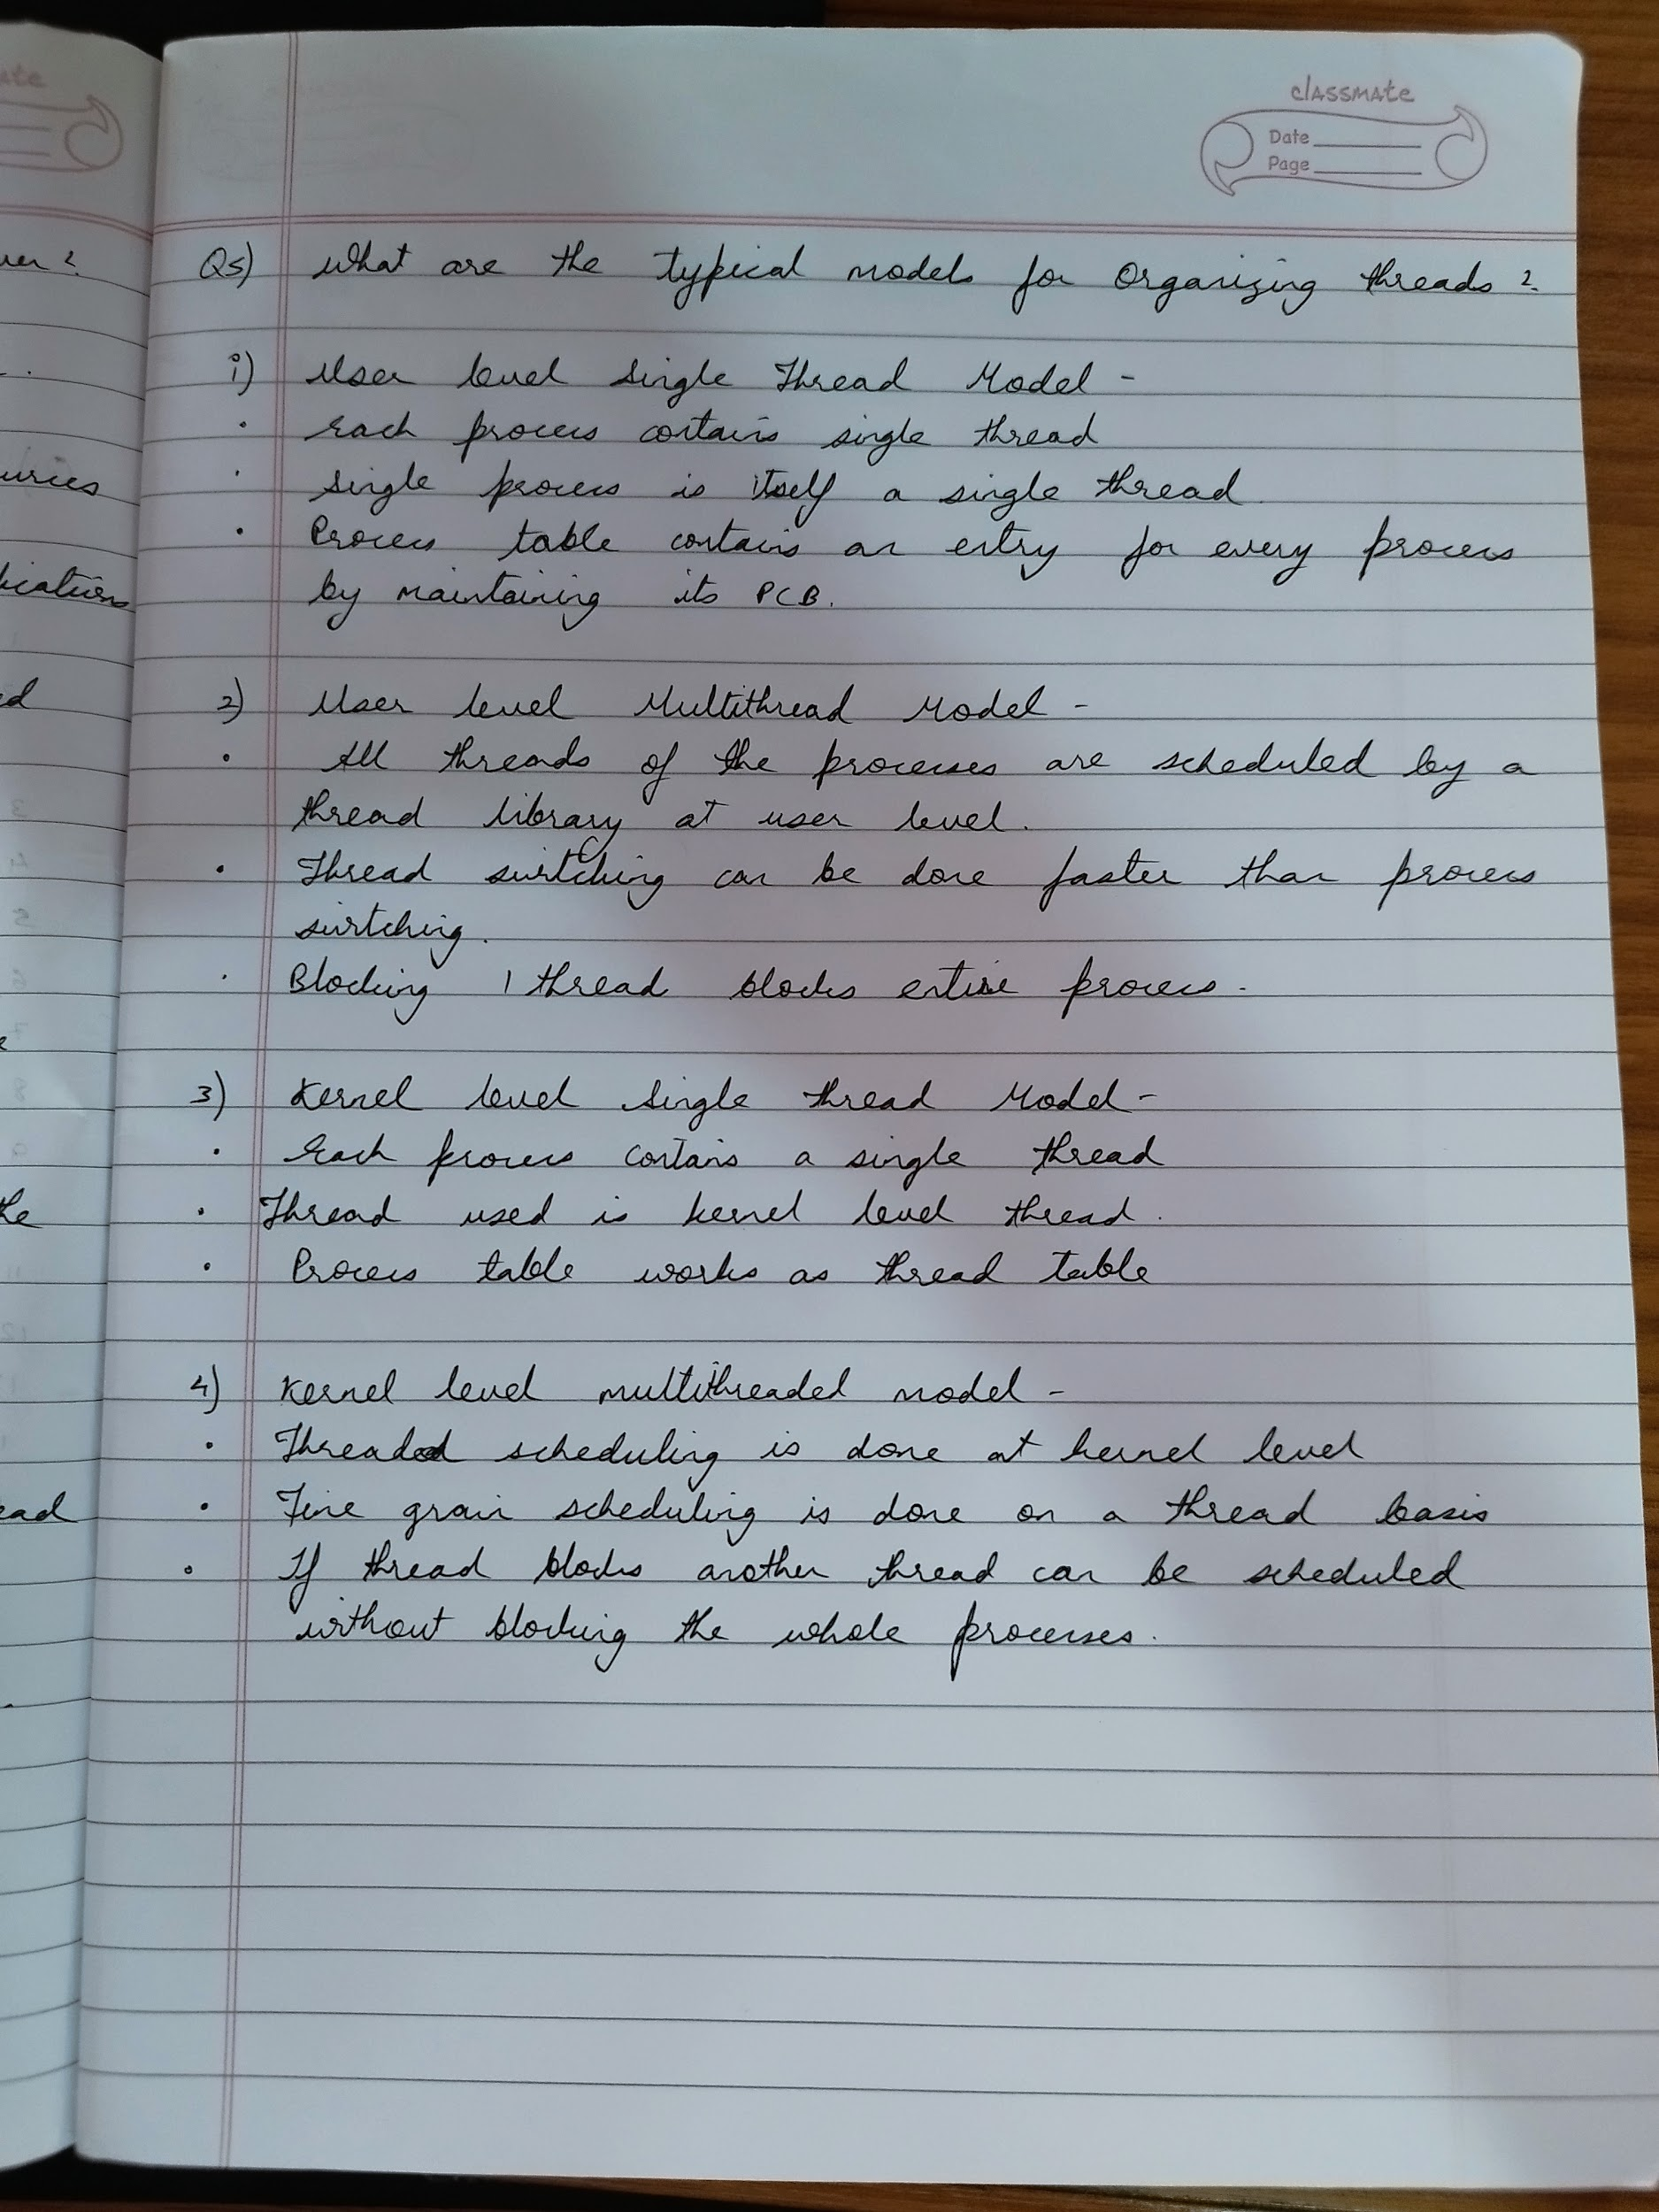 classmate
Date
Page
Q5) What are the typical models for Organizing threads ?
i) User level single Thread Model -
· Each process contains single thread
· Single process is itself a single thread.
· Process table contains an entry for every process
by maintaining its PCB.
2) User level Multithread Model -
· All threads of the processes are scheduled by a
thread library at user level.
· Thread switching can be done faster than process
switching.
· Blocking 1 thread blocks entire process.
3) Kernel level Single thread Model -
· Each process contains a single thread
· Thread used is kernel level thread.
· Process table works as thread table
4) Kernel level multithreaded model -
· Threaded scheduling is done at kernel level
· Fine grain scheduling is done on a thread basis
· If thread blocks another thread can be scheduled
without blocking the whole processes.